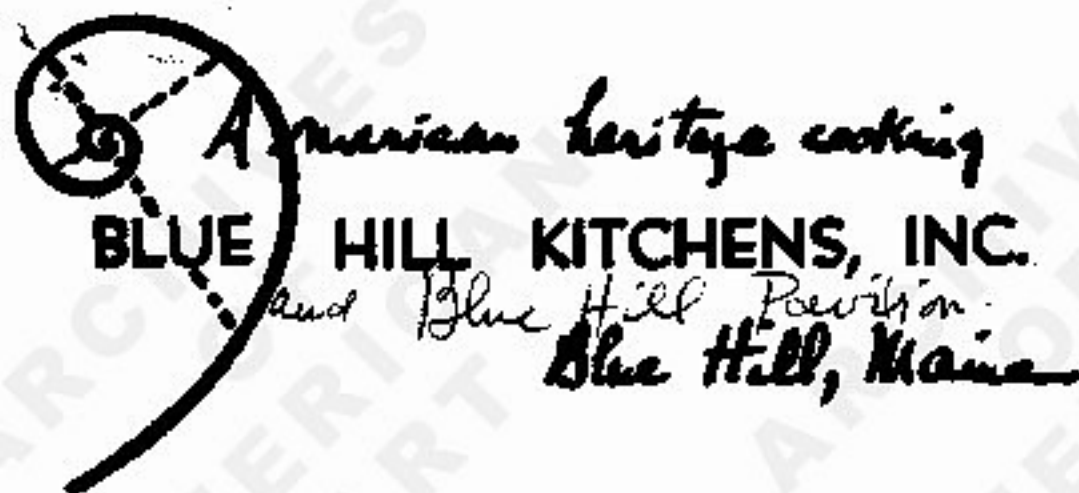 American heritage cooking
BLUE HILL KITCHENS, INC.
and Blue Hill Pavilion.
Blue Hill, Maine